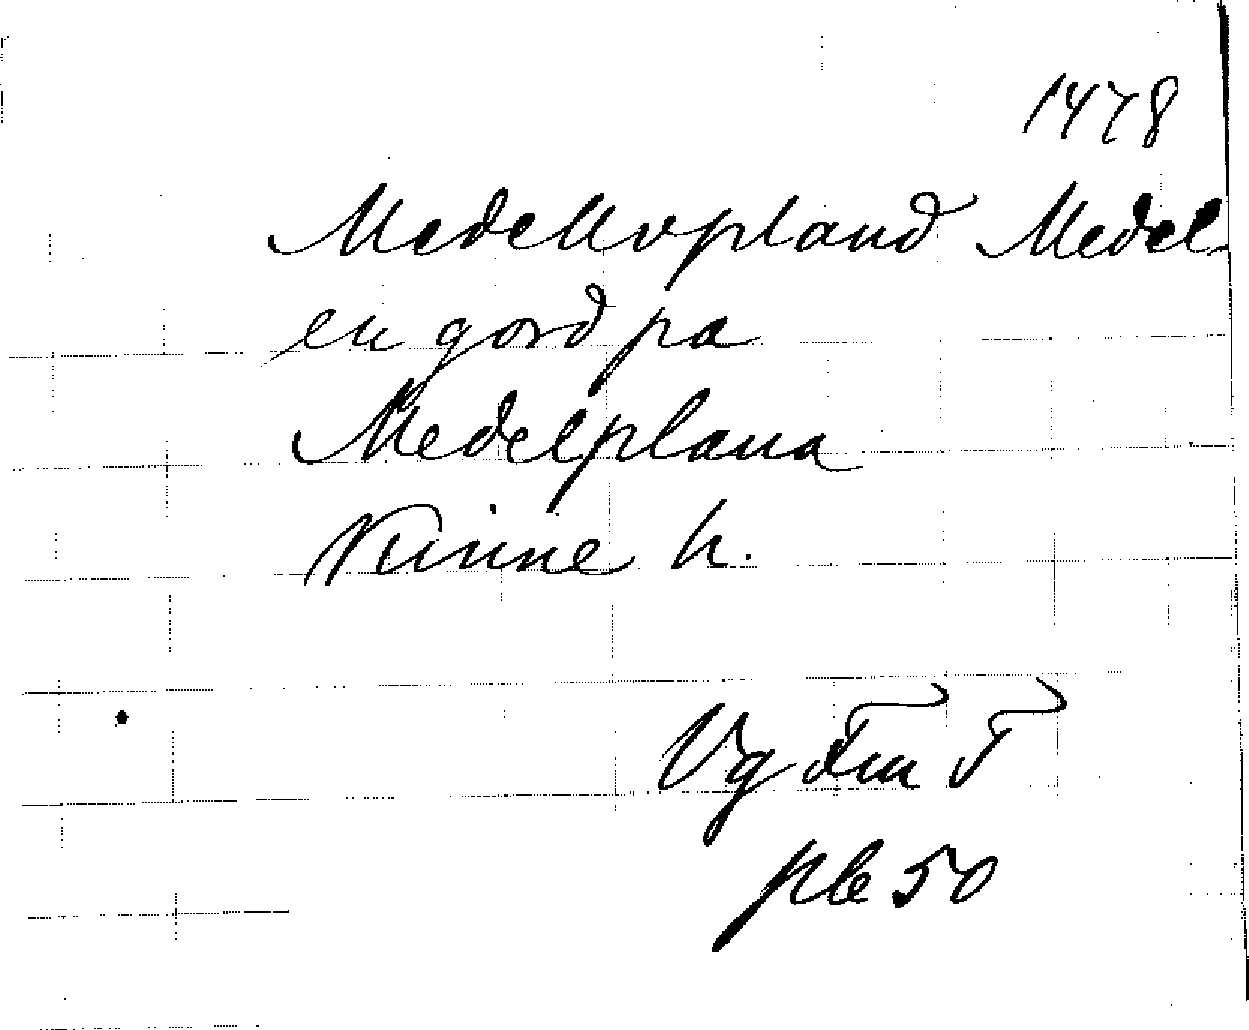 1478
Medelvpland Medel
en gord pa
Medelplana
Kinne h.
Vg Fm T
plb 50